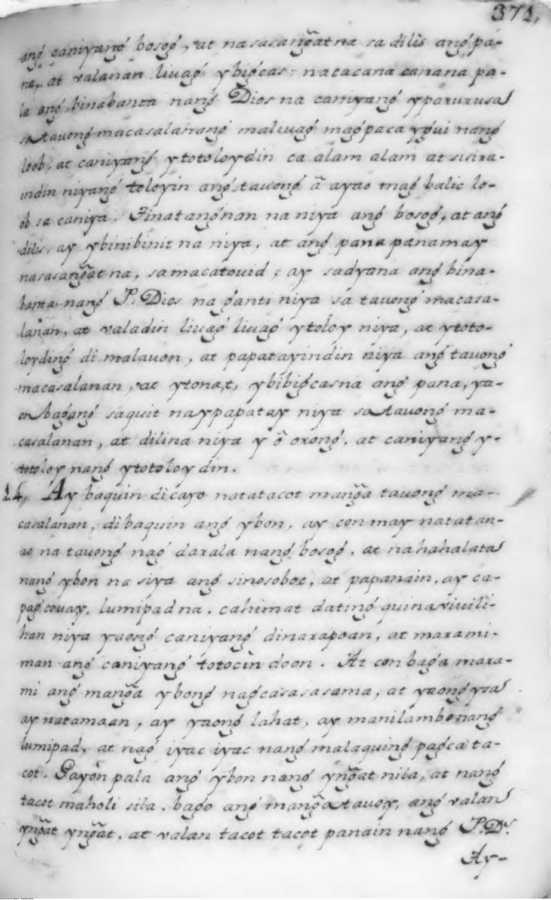 371,
ang̃ caniyang̃ bosog̃, at nasasang̃at na sa dilis ang̃ pa-
na, at valanan livag̃ ybig̃cas: nacacana canana pa-
la ang̃ binabanta nang̃ Dios na caniyang̃ yparurusa
sa tauong̃ macasalanang̃ malivag̃ mag̃paca ygui nang̃
loob, at caniyang̃ ytotoloy din ca alam alam at sisira-
indin niyang̃ toloyin ang̃ tauong̃ ã ayao mag̃ balic lo-
ob sa caniya. Jinatang̃nan na niya ang̃ bosog̃, at ang̃
dilis, ay ybinibinit na niya, at ang̃ pana panamay
nasasang̃at na, sa macatouid; ay sadyana ang̃ bina-
banta nang̃ P. Dios na g̃anti niya sa tauong̃ macasa-
lanan, at valadin livag̃ livag̃ ytoloy niya, at ytoto-
loyding̃ di malauon, at papatayindin niya ang̃ tauong̃
macasalanan, at ybibig̃cas na ang̃ pana, ya-
on bag̃ang̃ saquit na ypapatay niya sa tauong̃ ma-
casalanan, at dilina niya y õ orong̃, at caniyang̃ y-
totoloy nang̃ ytotoloy din.
Ay baquin di cayo natatacot mang̃a tauong̃ ma-
casalanan, di baquin ang̃ ybon, ay con may natatan-
ao na tauong̃ nag̃ darala nang̃ bosog̃, at nahahalata
nang̃ ybon na siya ang̃ sinosoboc, at papanain, ay ca-
pag̃couay, lumipad na, cahimat dating̃ quinauiuili-
han niya yaong̃ caniyang̃ dinarapoan, at marami-
man ang̃ caniyang̃ totocin doon. At con bag̃a mara-
mi ang̃ mang̃a ybong̃ nag̃casasasama, at yaong̃ ysa
ay natamaan, ay yaong̃ lahat, ay manilambo nang̃
lumipad, at nag̃ iyac iyac nang̃ malaquing̃ pag̃ca ta-
cot. Gayon pala ang̃ ybon nang̃ yng̃at nila, at nang̃
tacot maholi sila, bag̃o ang̃ mang̃a tauoy, ang̃ valan
yng̃at yng̃at, at valan tacot tacot panain nang̃ P. Ds.
Ay-